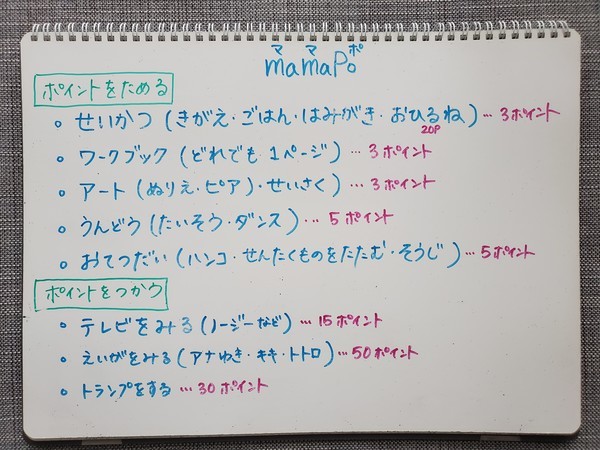 mamaPo
ママポ
ポイントをためる
せいかつ(きがえ・ごはん・はみがき・おひるね)…3ポイント
20P
ワークブック(どれでも1ページ)…3ポイント
アート(ぬりえ・ピア)・せいさく)…3ポイント
うんどう(たいそう・ダンス)…5ポイント
おてつだい(ハンコ・せんたくものをたたむ・そうじ)…5ポイント
ポイントをつかう
テレビをみる(ノージーなど)…15ポイント
えいがをみる(アナゆき・キキ・トトロ)…50ポイント
トランプをする…30ポイント